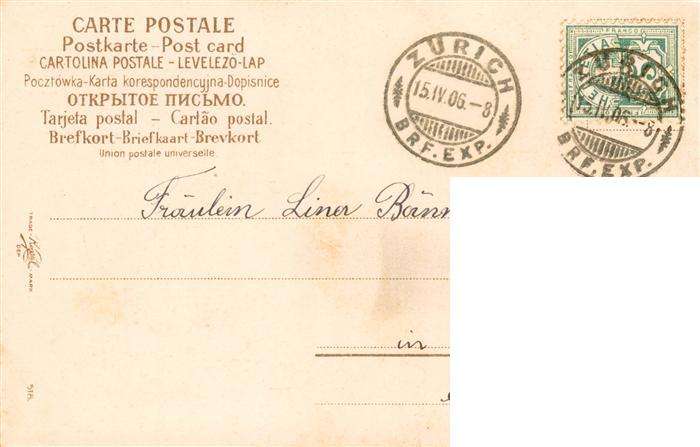 CARTE POSTALE
Postkarte - Post card
CARTOLINA POSTALE - LEVELEZÖ-LAP
Pocztówka-Karta korespondencyjna-Dopisnice
ОТКРЫТОЕ ПИСЬМО.
Tarjeta postal - Cartão postal.
Brefkort-Briefkaart-Brevkort
Union postale universelle
ZÜRICH
15.IV.06.-8
BRF.EXP.
FRANCO
ZÜRICH
15.IV.06.-8
BRF.EXP.
Fräulein Liner
in
TRADE
MARK
DEP
518.